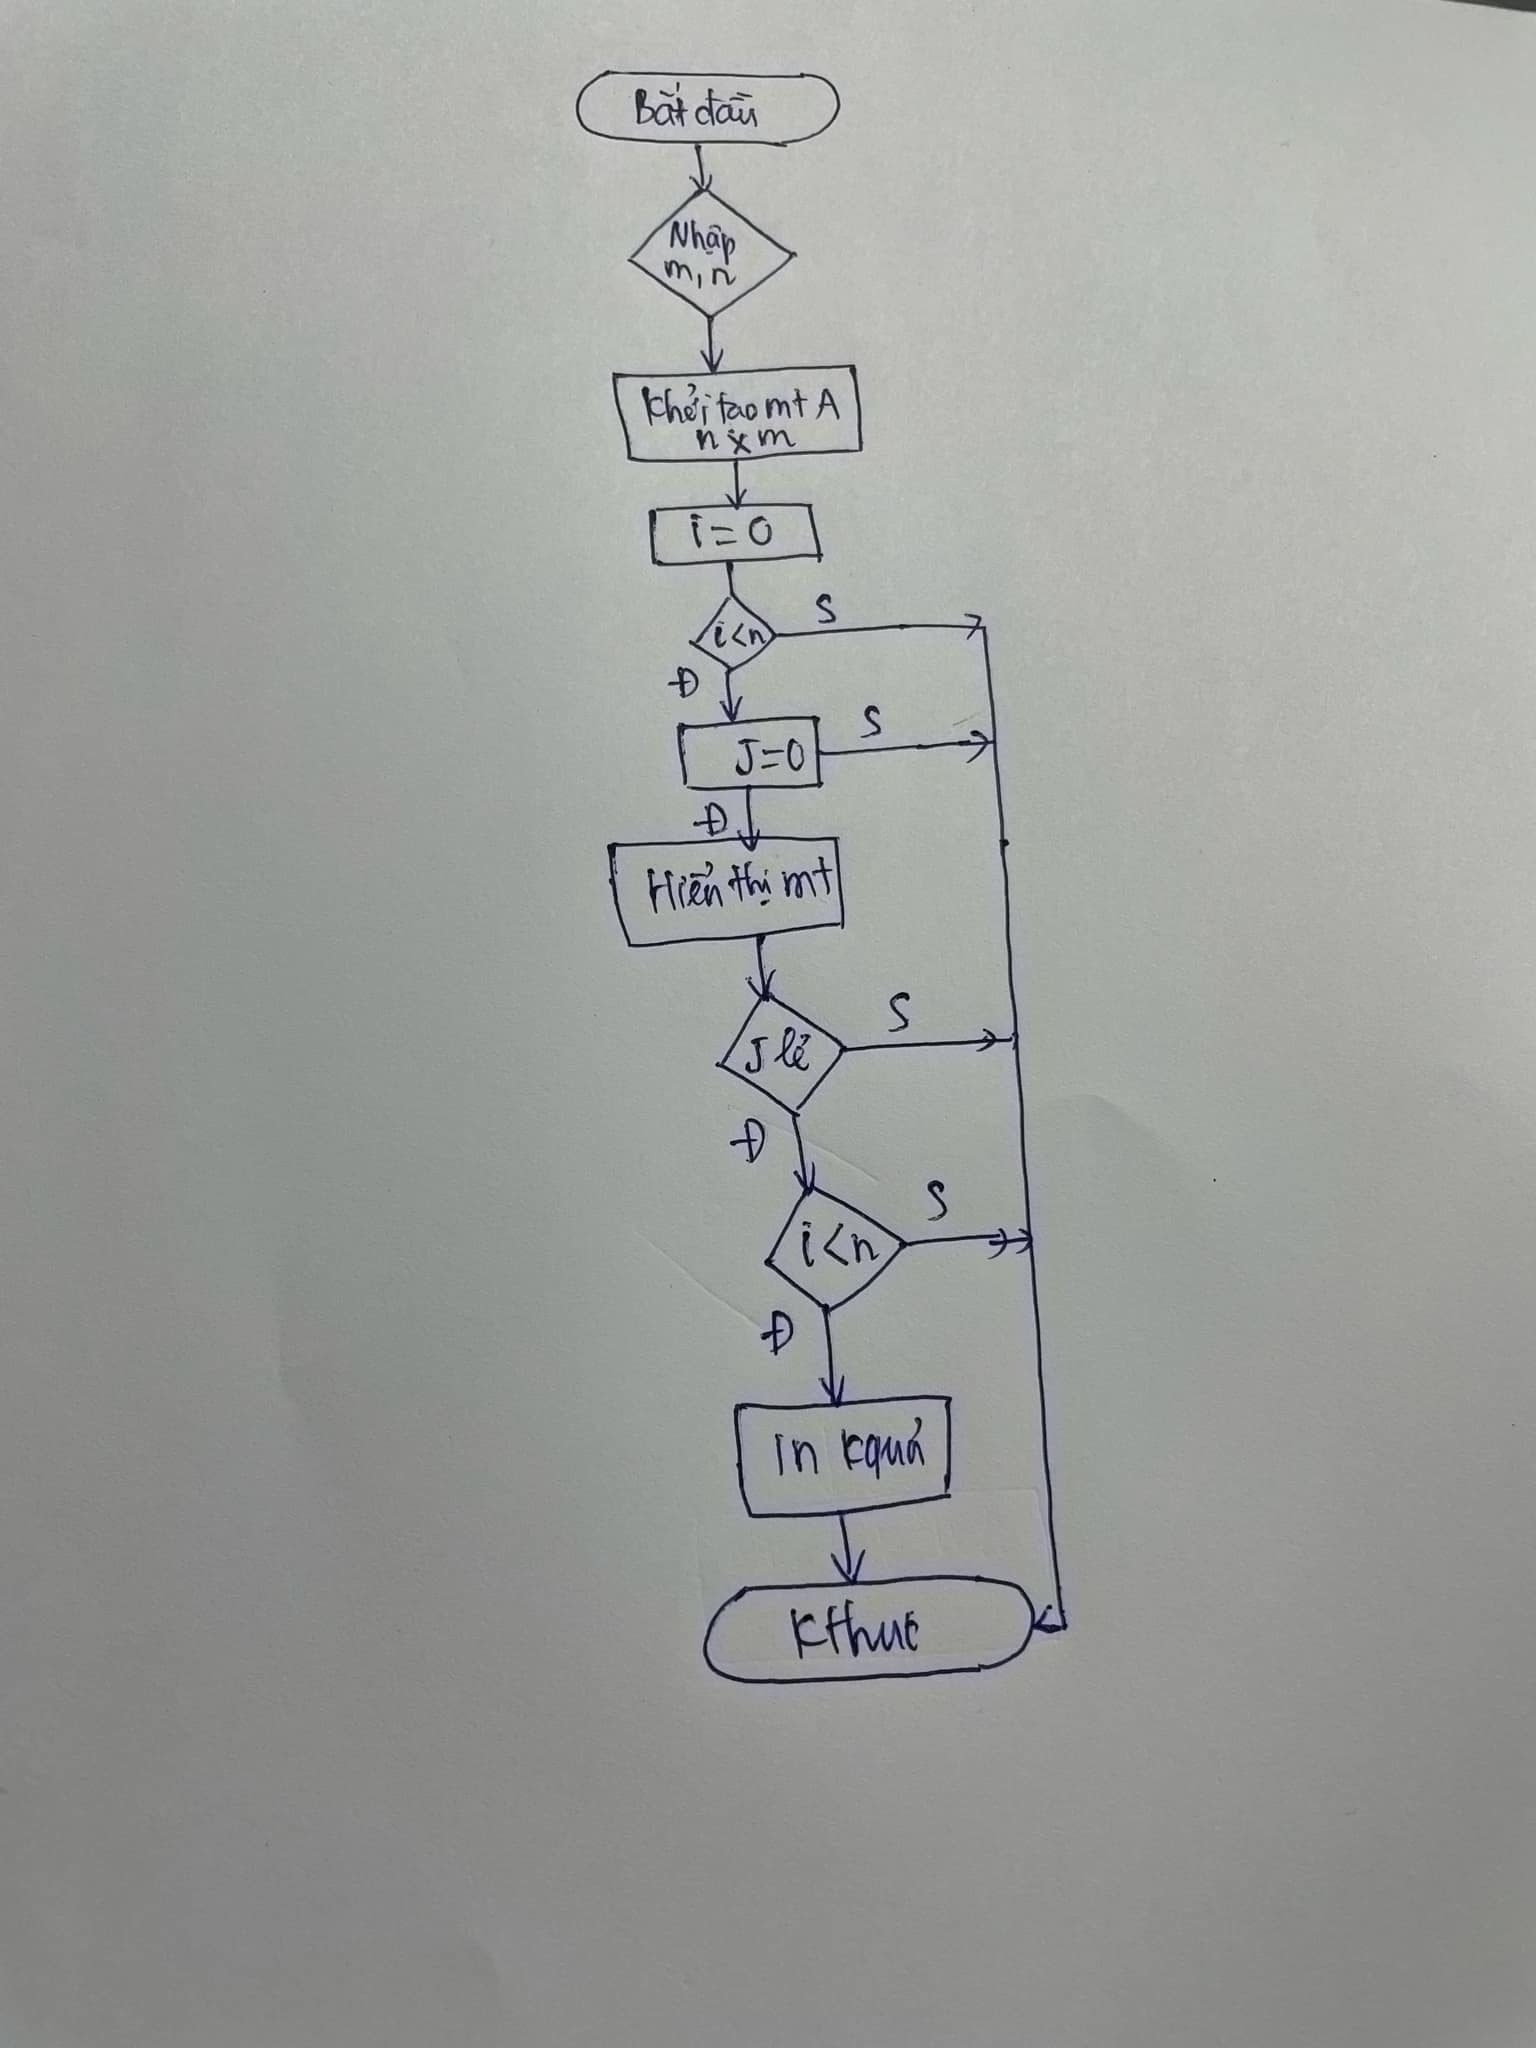 Bắt đầu
Nhập
m, n
Khởi tạo mt A
n x m
i = 0
i < n
S
Đ
J = 0
S
Đ
Hiển thị mt
J lẻ
S
Đ
i < n
S
Đ
in kquả
Kthuc